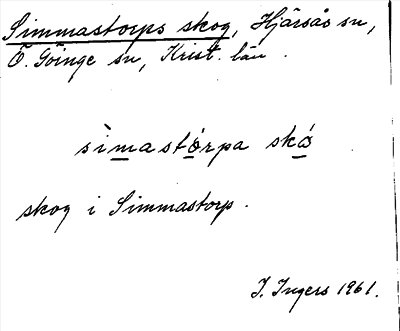 Simmastorps skog, Hjärsås sn,
Ö. Göinge sn, Krist. län.
sìmastó̱rpa skó̱
skog i Simmastorp.
I. Ingers 1961.